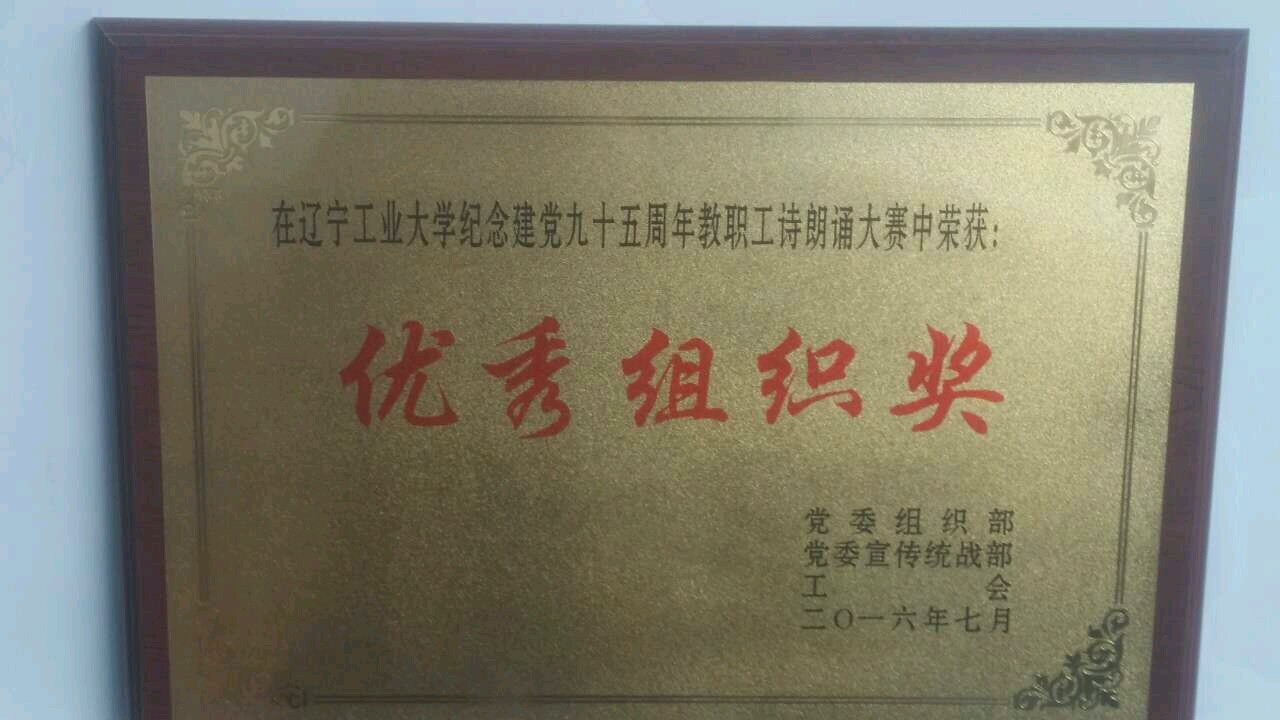 在辽宁工业大学纪念建党九十五周年教职工诗朗诵大赛中荣获：
优秀组织奖
党委组织部
党委宣传统战部
工会
二〇一六年七月